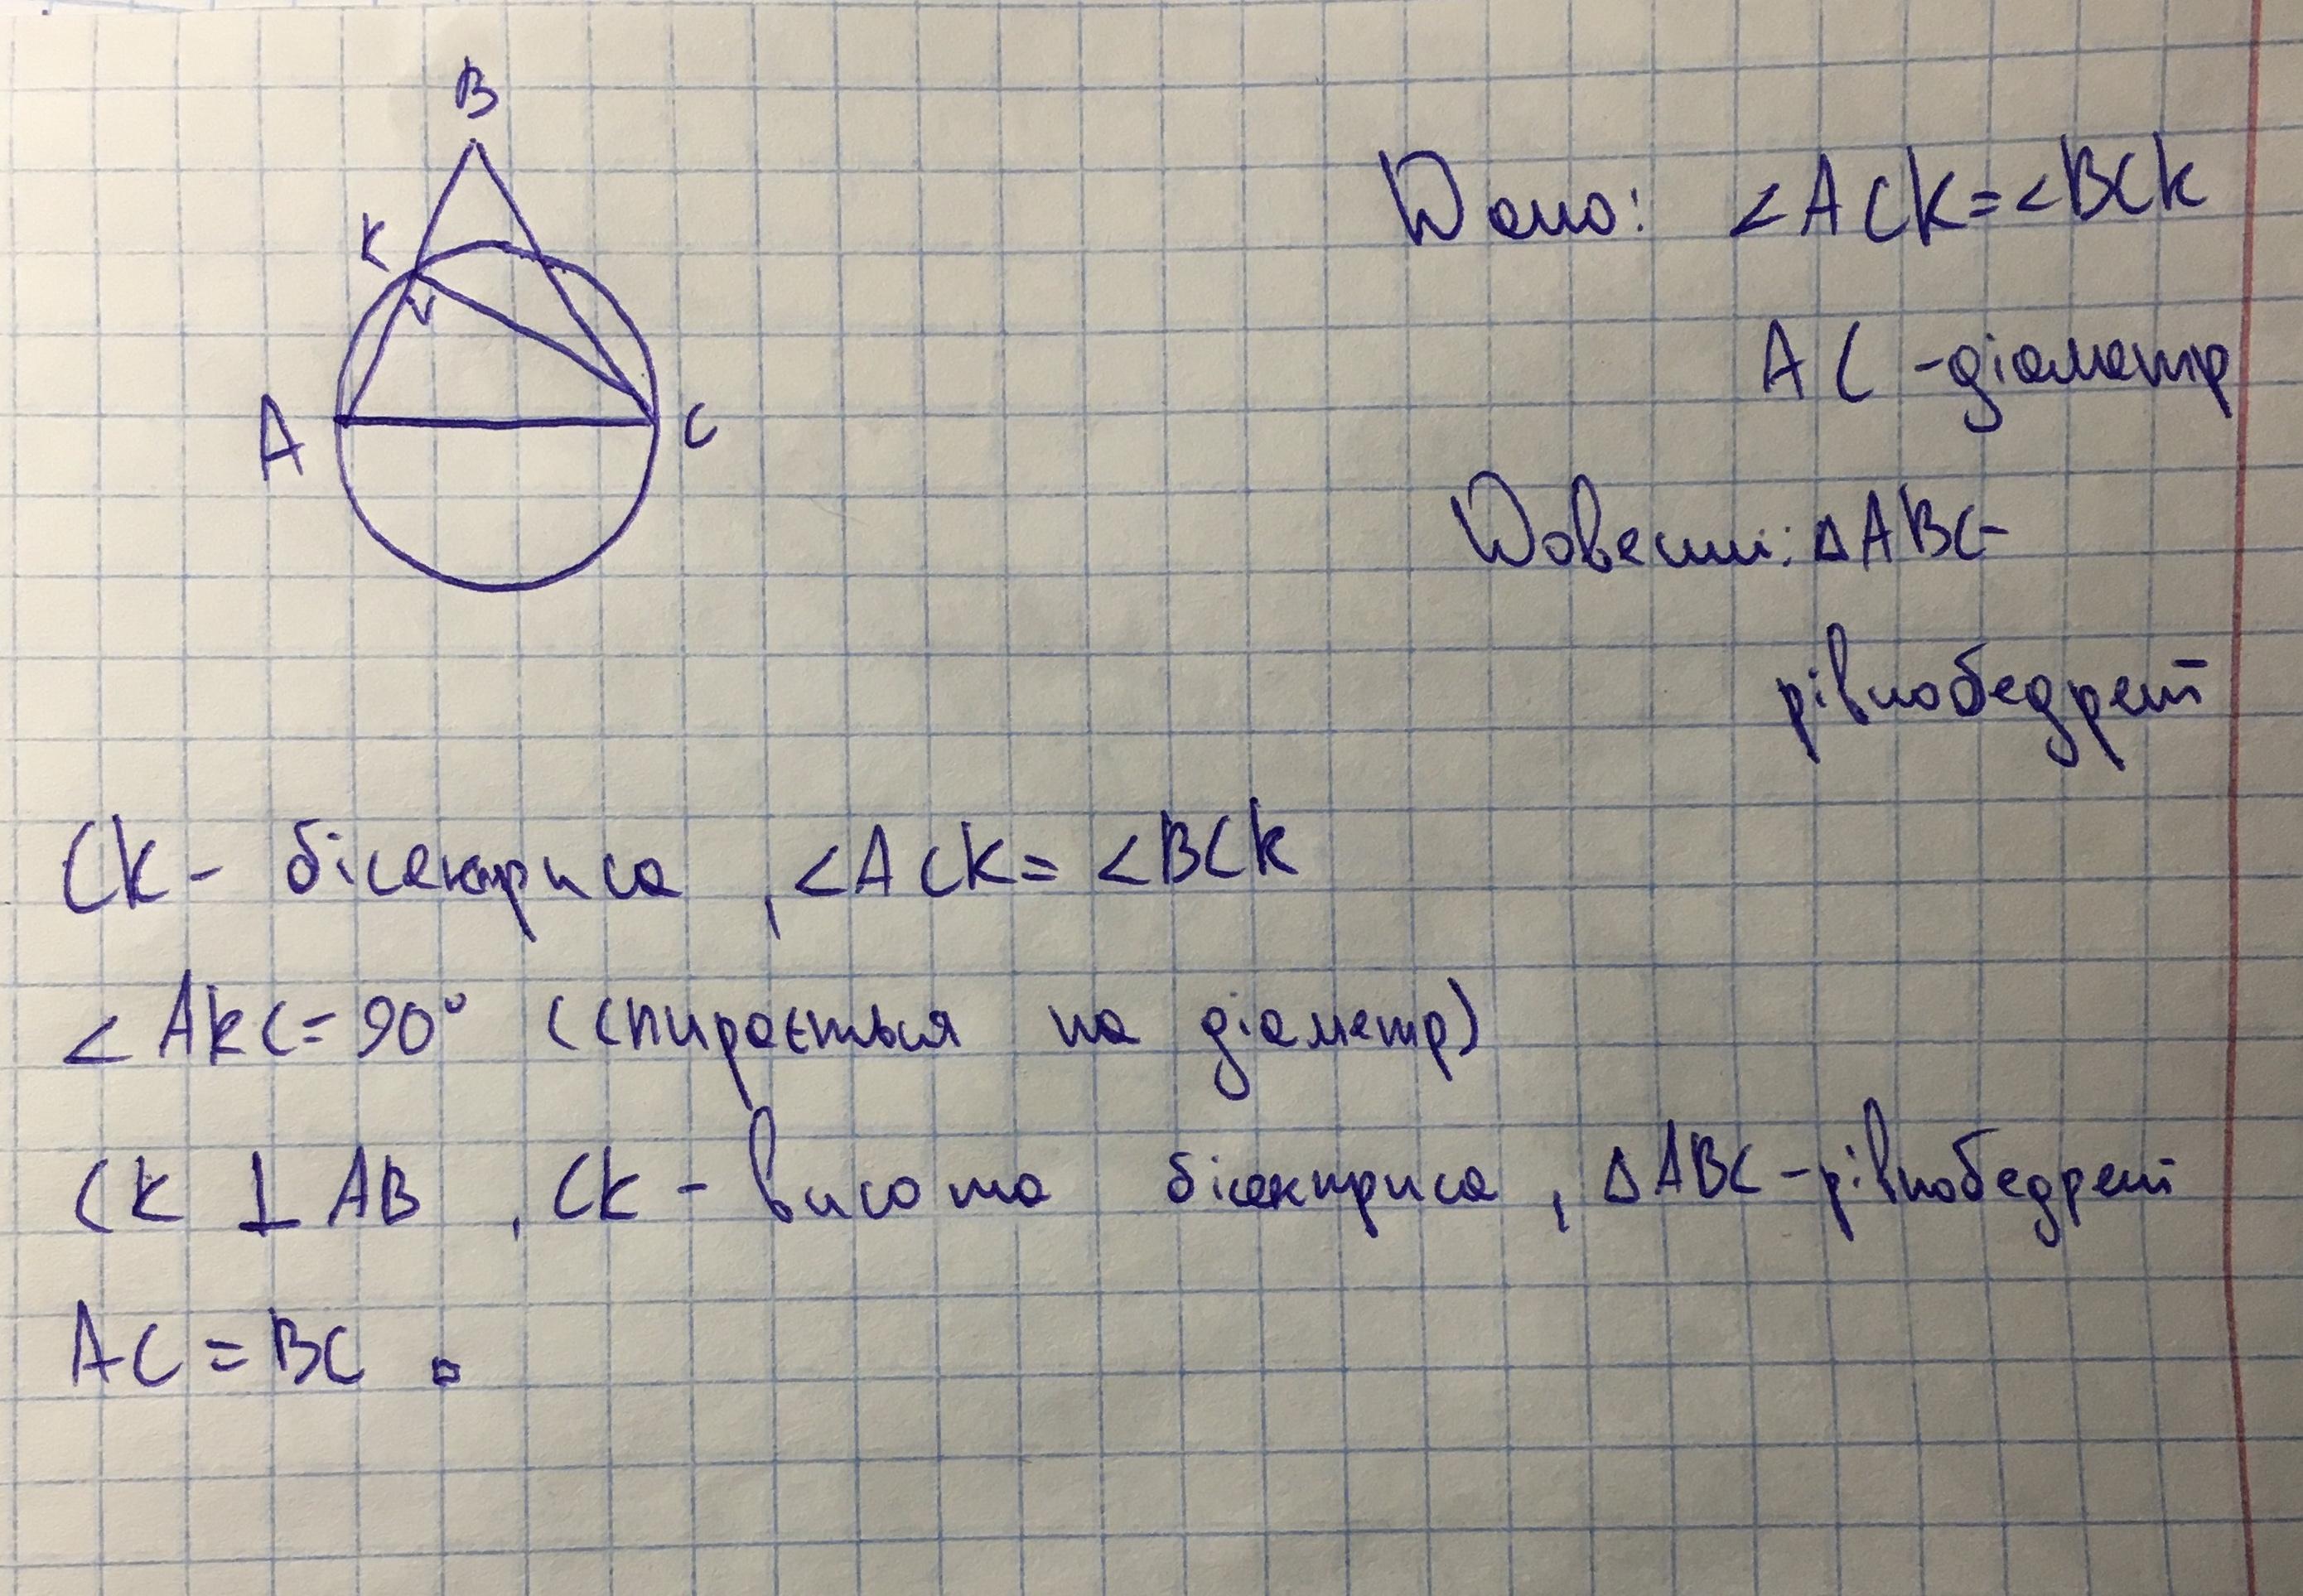 B
K
A
C
Дано: <ACK=<BCK
AC - діаметр
Довести: △ABC-
рівнобедрений
CK - бісектриса , <ACK= <BCK
< AKC= 90° (спирається на діаметр)
CK ⊥ AB , CK - висота бісектриса , △ABC - рівнобедрений
AC = BC